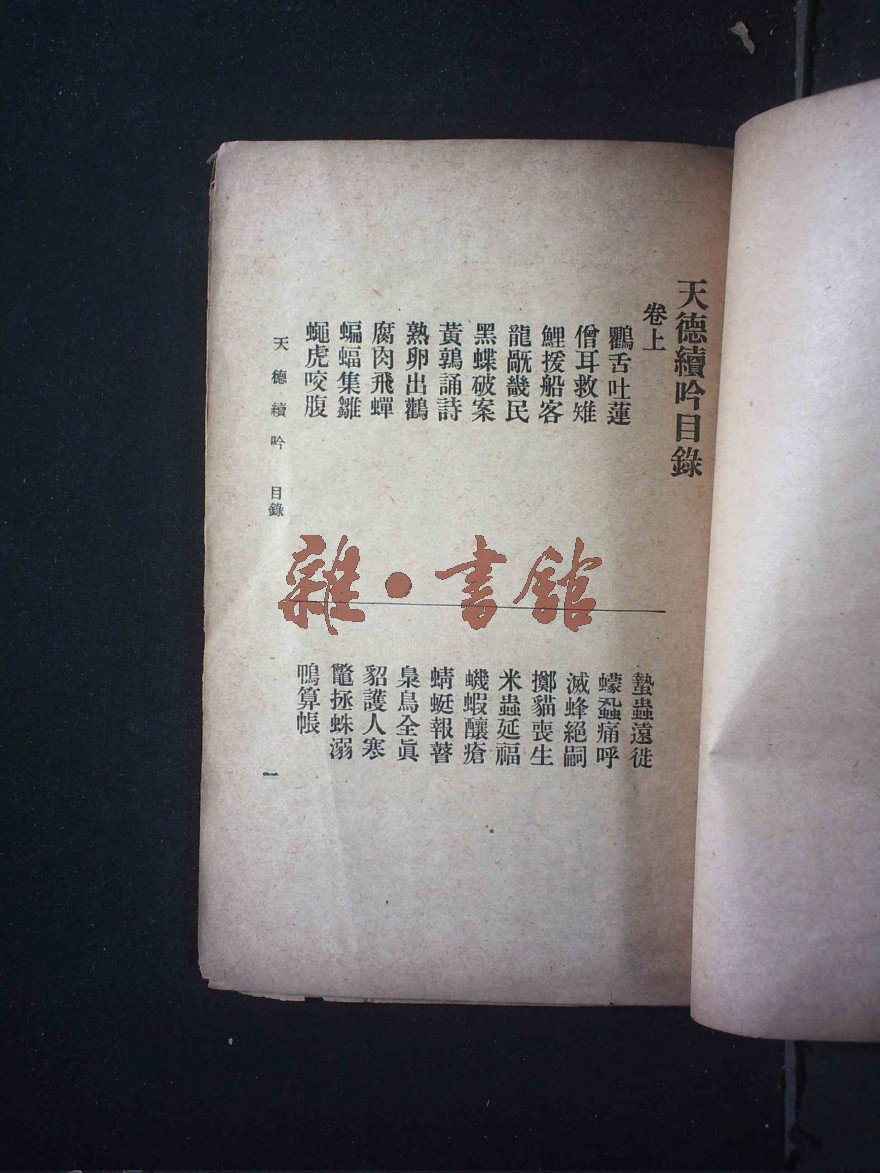 天德續吟目錄
卷上
鸚舌吐蓮
僧耳救雉
鯉援船客
龍厩畿民
黑蝶破案
黃鶉誦詩
熟卵出鸛
腐肉飛蟬
蝙蝠集雛
蠅虎咬腹
蟄蟲遠徙
蠓蝨痛呼
滅蜂絕嗣
擲貓喪生
米蟲延福
蟣蝦釀瘡
蜻蜓報瞽
梟鳥全眞
貂護人寒
鼈拯蛛溺
鴨算帳
天德續吟 目錄
一
雜·書館